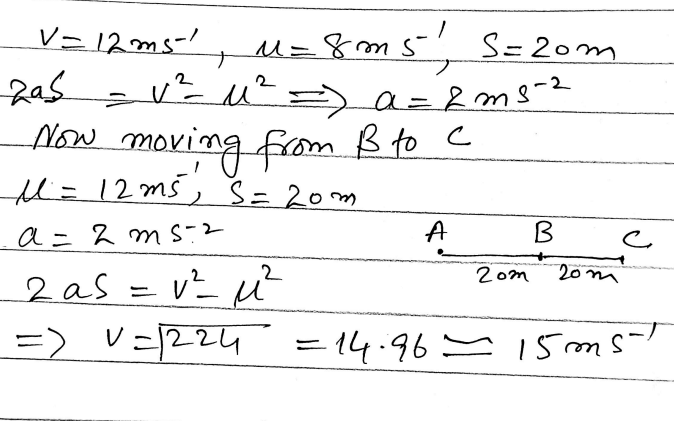 V = 12 ms⁻¹, u = 8 m s⁻¹, S = 20 m
2aS = v² - u² => a = 2 m s⁻²
Now moving from B to C
u = 12 ms⁻¹, S = 20 m
a = 2 m s⁻²
A B C
20m 20m
2 aS = v² - u²
=> V = √224 = 14.96 ≃ 15 m s⁻¹